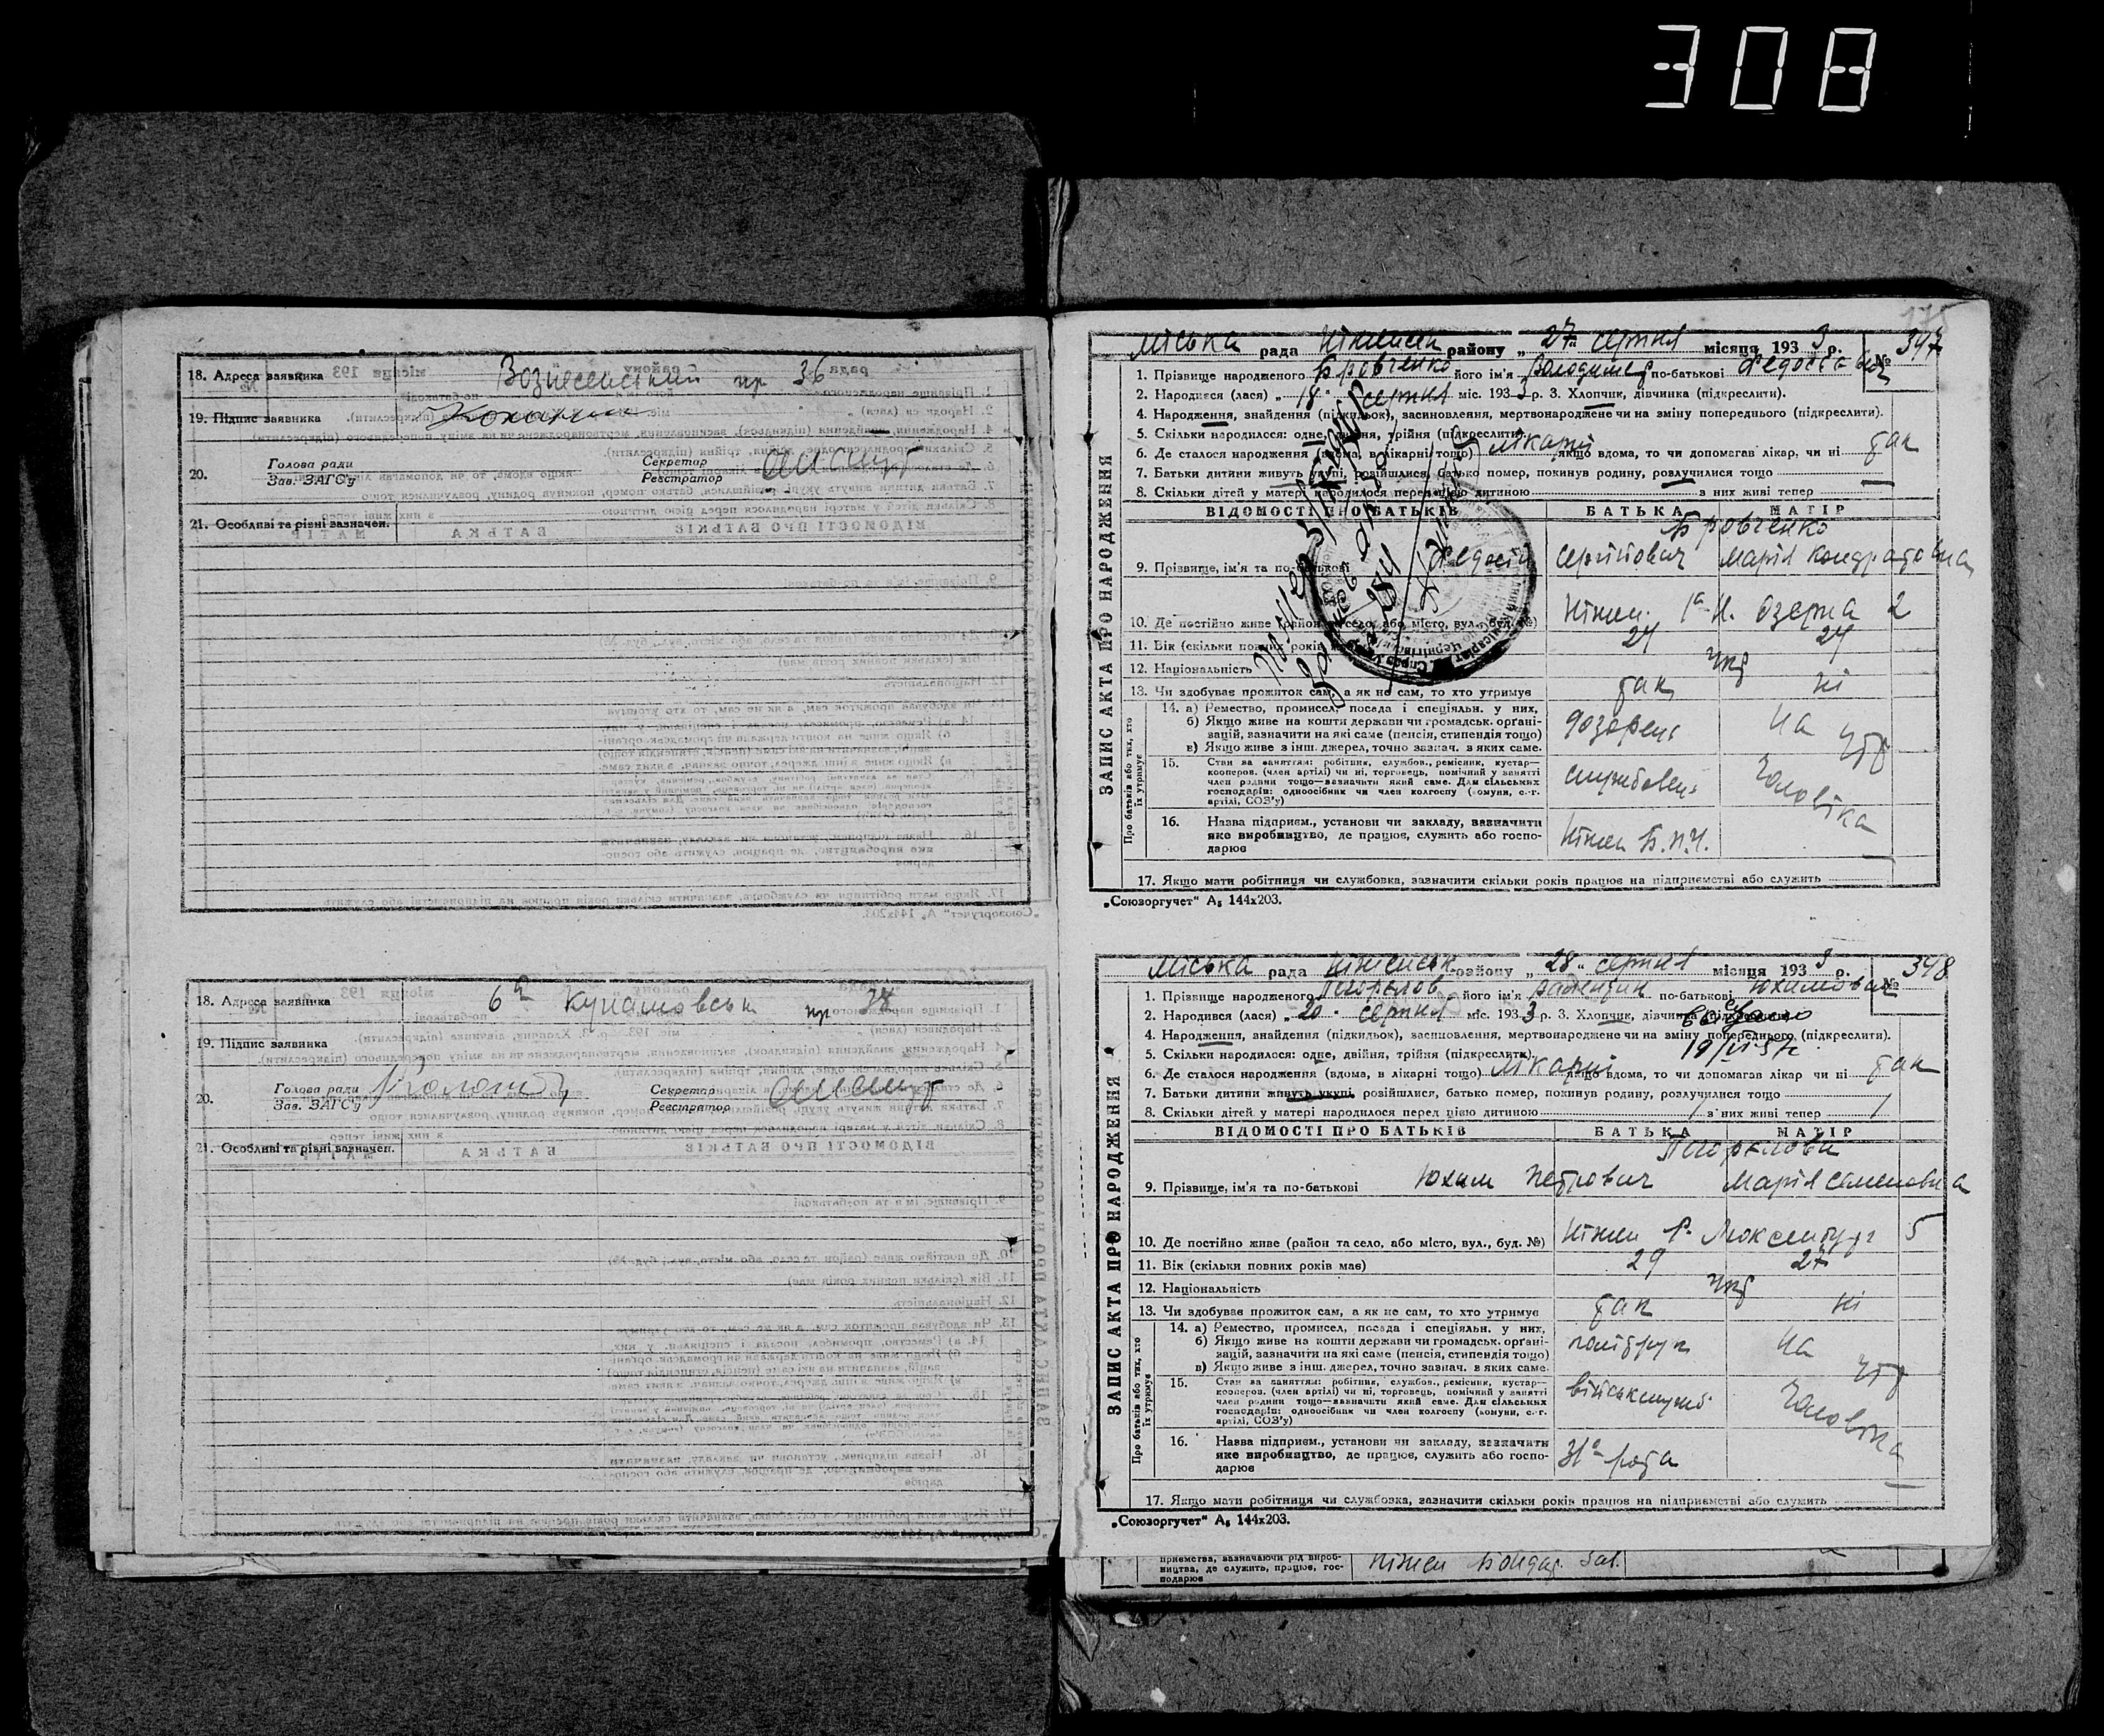 308
18. Адреса заявника Вознесенський пр 36
19. Підпис заявника
20. Голова ради Зав. ЗАГС'у Секретар Реєстратор
21. Особливі та різні зазначен.
18. Адреса заявника 6а Кунашовськ пр 37
19. Підпис заявника
20. Голова ради Зав. ЗАГС'у Секретар Реєстратор
21. Особливі та різні зазначен.
175
ЗАПИС АКТА ПРО НАРОДЖЕННЯ
Міська рада Ніженськ району „27" серпня місяця 1933 р. № 397
1. Прізвище народженого Бровченко його ім'я Володимир по-батькові Федосієвич
2. Народився (лася) „18" серпня міс. 1933 р. 3. Хлопчик, дівчинка (підкреслити).
4. Народження, знайдення (підкидьок), засиновлення, мертвонароджене чи на зміну попереднього (підкреслити).
5. Скільки народилося: одне, двійня, трійня (підкреслити).
6. Де сталося народження (вдома, в лікарні тощо) лікарні якщо вдома, то чи допомагав лікар, чи ні так
7. Батьки дитини живуть укупі, розійшлися, батько помер, покинув родину, розлучилися тощо
8. Скільки дітей у матері народилося перед цією дитиною з них живі тепер
ВІДОМОСТІ ПРО БАТЬКІВ БАТЬКА МАТІР
Бровченко
9. Прізвище, ім'я та по-батькові Федосій Сергійович Марія Кондратовна
10. Де постійно живе (район та село, або місто, вул., буд. №) Ніжен. 1а Н. Озерна 2
11. Вік (скільки повних років має) 24 24
12. Національність укр
13. Чи здобуває прожиток сам, а як не сам, то хто утримує так ні
Про батьків або тих, хто їх утримує
14. а) Ремество, промисел, посада і спеціяльн. у них,
б) Якщо живе на кошти держави чи громадськ. організацій, зазначити на які саме (пенсія, стипендія тощо) дозорець на утр
в) Якщо живе з інш. джерел, точно зазнач. з яких саме.
15. Стан за заняттям: робітник, службов., ремісник, кустар—
кооперов. (член артілі) чи ні, торговець, помічний у занятті
член родини тощо—зазначити який саме. Для сільських службовець чоловіка
господарів: одноосібник чи член колгоспу (комуни, с.-г.
артілі, СОЗ'у)
16. Назва підприєм., установи чи закладу, зазначити
яке виробництво, де працює, служить або господарює Ніжен Б.П.Ч.
17. Якщо мати робітниця чи службовка, зазначити скільки років працює на підприємстві або служить
„Союзоргучет" А5 144х203.
ЗАПИС АКТА ПРО НАРОДЖЕННЯ
Міська рада Ніженськ району „28" серпня місяця 1933 р. № 398
1. Прізвище народженого його ім'я Валентин по-батькові Юхимович
2. Народився (лася) „20" серпня міс. 1933 р. 3. Хлопчик, дівчинка (підкреслити).
4. Народження, знайдення (підкидьок), засиновлення, мертвонароджене чи на зміну попереднього (підкреслити).
5. Скільки народилося: одне, двійня, трійня (підкреслити).
6. Де сталося народження (вдома, в лікарні тощо) лікарні якщо вдома, то чи допомагав лікар чи ні так
7. Батьки дитини живуть укупі, розійшлися, батько помер, покинув родину, розлучилися тощо
8. Скільки дітей у матері народилося перед цією дитиною / з них живі тепер /
ВІДОМОСТІ ПРО БАТЬКІВ БАТЬКА МАТІР
9. Прізвище, ім'я та по-батькові Юхим Петрович Марія Семеновна
10. Де постійно живе (район та село, або місто, вул., буд. №) Ніжен Р. Люксембург 5
11. Вік (скільки повних років має) 29 27
12. Національність укр
13. Чи здобуває прожиток сам, а як не сам, то хто утримує так ні
Про батьків або тих, хто їх утримує
14. а) Ремество, промисел, посада і спеціяльн. у них,
б) Якщо живе на кошти держави чи громадськ. організацій, зазначити на які саме (пенсія, стипендія тощо) політрук на утр
в) Якщо живе з інш. джерел, точно зазнач. з яких саме.
15. Стан за заняттям: робітник, службов., ремісник, кустар—
кооперов. (член артілі) чи ні, торговець, помічний у занятті
член родини тощо—зазначити який саме. Для сільських військслужб чоловіка
господарів: одноосібник чи член колгоспу (комуни, с.-г.
артілі, СОЗ'у)
16. Назва підприєм., установи чи закладу, зазначити
яке виробництво, де працює, служить або господарює 31а рота
17. Якщо мати робітниця чи службовка, зазначити скільки років працює на підприємстві або служить
„Союзоргучет" А5 144х203.
приємства, зазначаючи рід виробництва, де служить, працює, господарює Ніжен